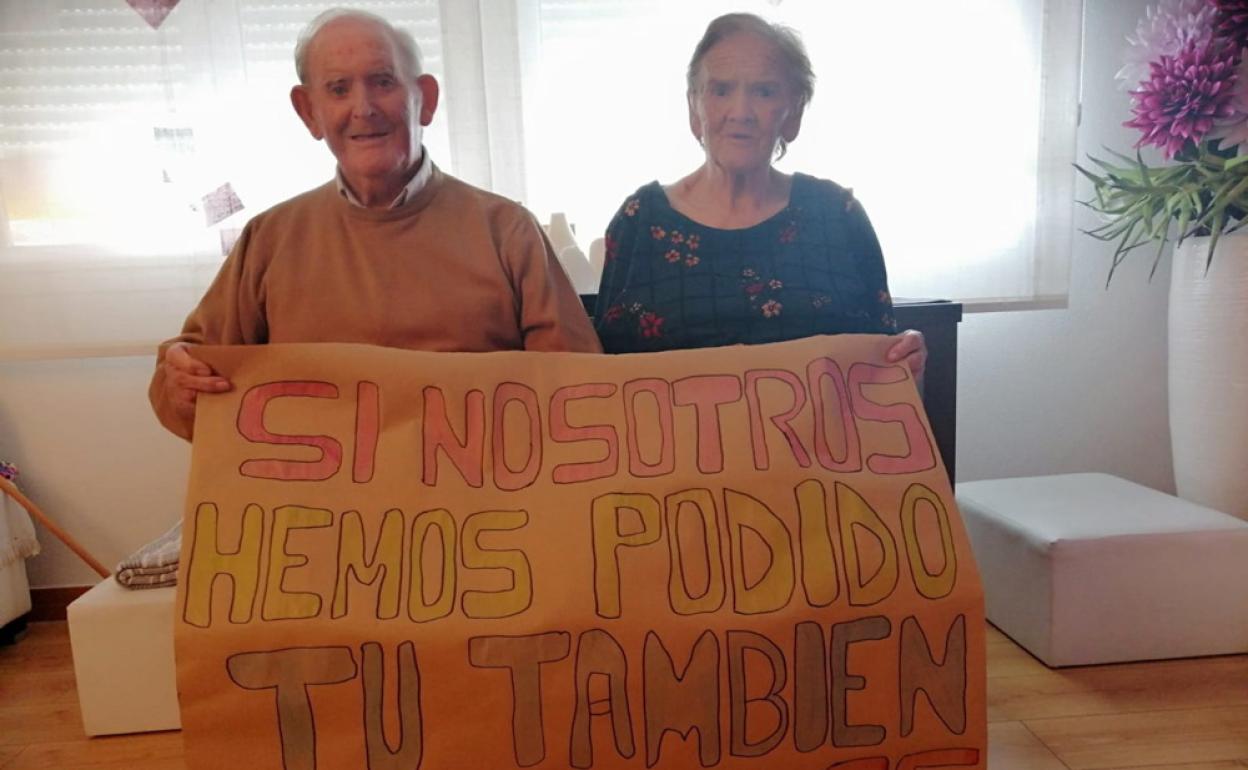 SI NOSOTROS
HEMOS PODIDO
TU TAMBIEN